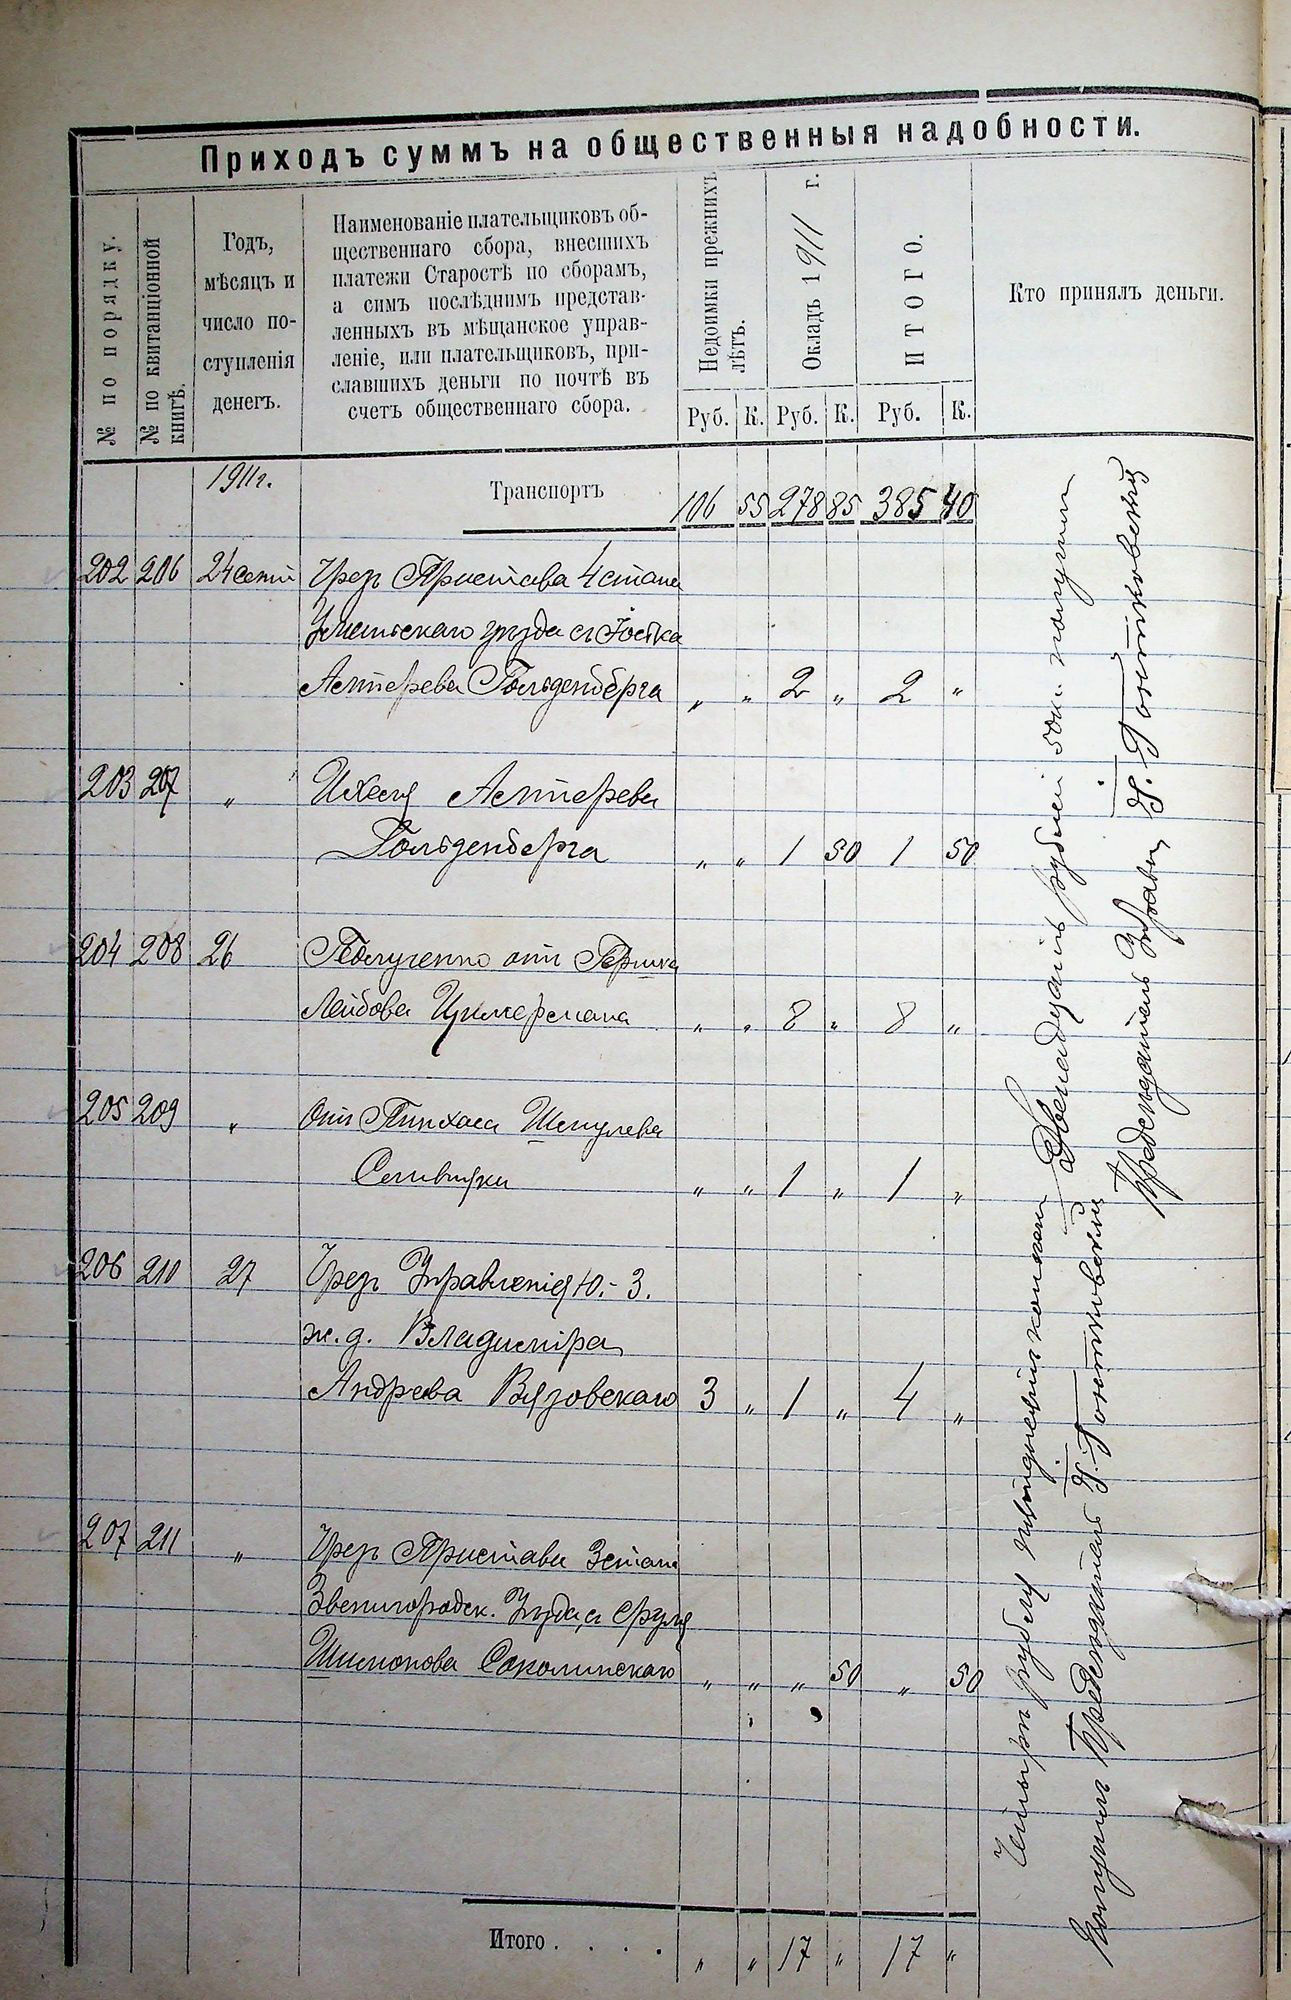 Приходъ суммъ на общественныя надобности.
№ по порядку.
№ по квитанціонной книгѣ.
Годъ,
мѣсяцъ и
число по-
ступленія
денегъ.
Наименованіе плательщиковъ об-
щественнаго сбора, внесшихъ
платежи Старостѣ по сборамъ,
а симъ послѣднимъ представ-
ленныхъ въ мѣщанское управ-
леніе, или плательщиковъ, при-
славшихъ деньги по почтѣ въ
счетъ общественнаго сбора.
Недоимки прежнихъ
лѣтъ.
Окладъ 1911 г.
ИТОГО.
Кто принялъ деньги.
Руб. К. Руб. К. Руб. К.
1911г. Транспортъ 106 55 278 85 385 40
202 206 24 сент Чрез Пристава 4 стана
Уманскаго уезда с Іоська
Астерева Гольденберга „ „ 2 „ 2 „
203 207 „ Ихеля Астерева
Гольденберга „ „ 1 50 1 50
204 208 26 Получено от Гершка
Лейбова Цимермана „ „ 8 „ 8 „
205 209 „ От Пинхаса Шмулева
Сливняка „ „ 1 „ 1 „
206 210 27 Чрез Управленія Ю.-З.
ж.д. Владиміра
Андрева Вязовскаго 3 „ 1 „ 4 „
207 211 „ Чрез Пристава 3 стана
Звенигородск. Уезда с Сруля
Шимонова Соколинскаго „ „ „ 50 „ 50
Итого . . . . „ „ 17 „ 17 „
Двенадцать рублей 50 к. получил
Председатель Управы
Четыре рубля пятдесят копеек
Получил Председатель